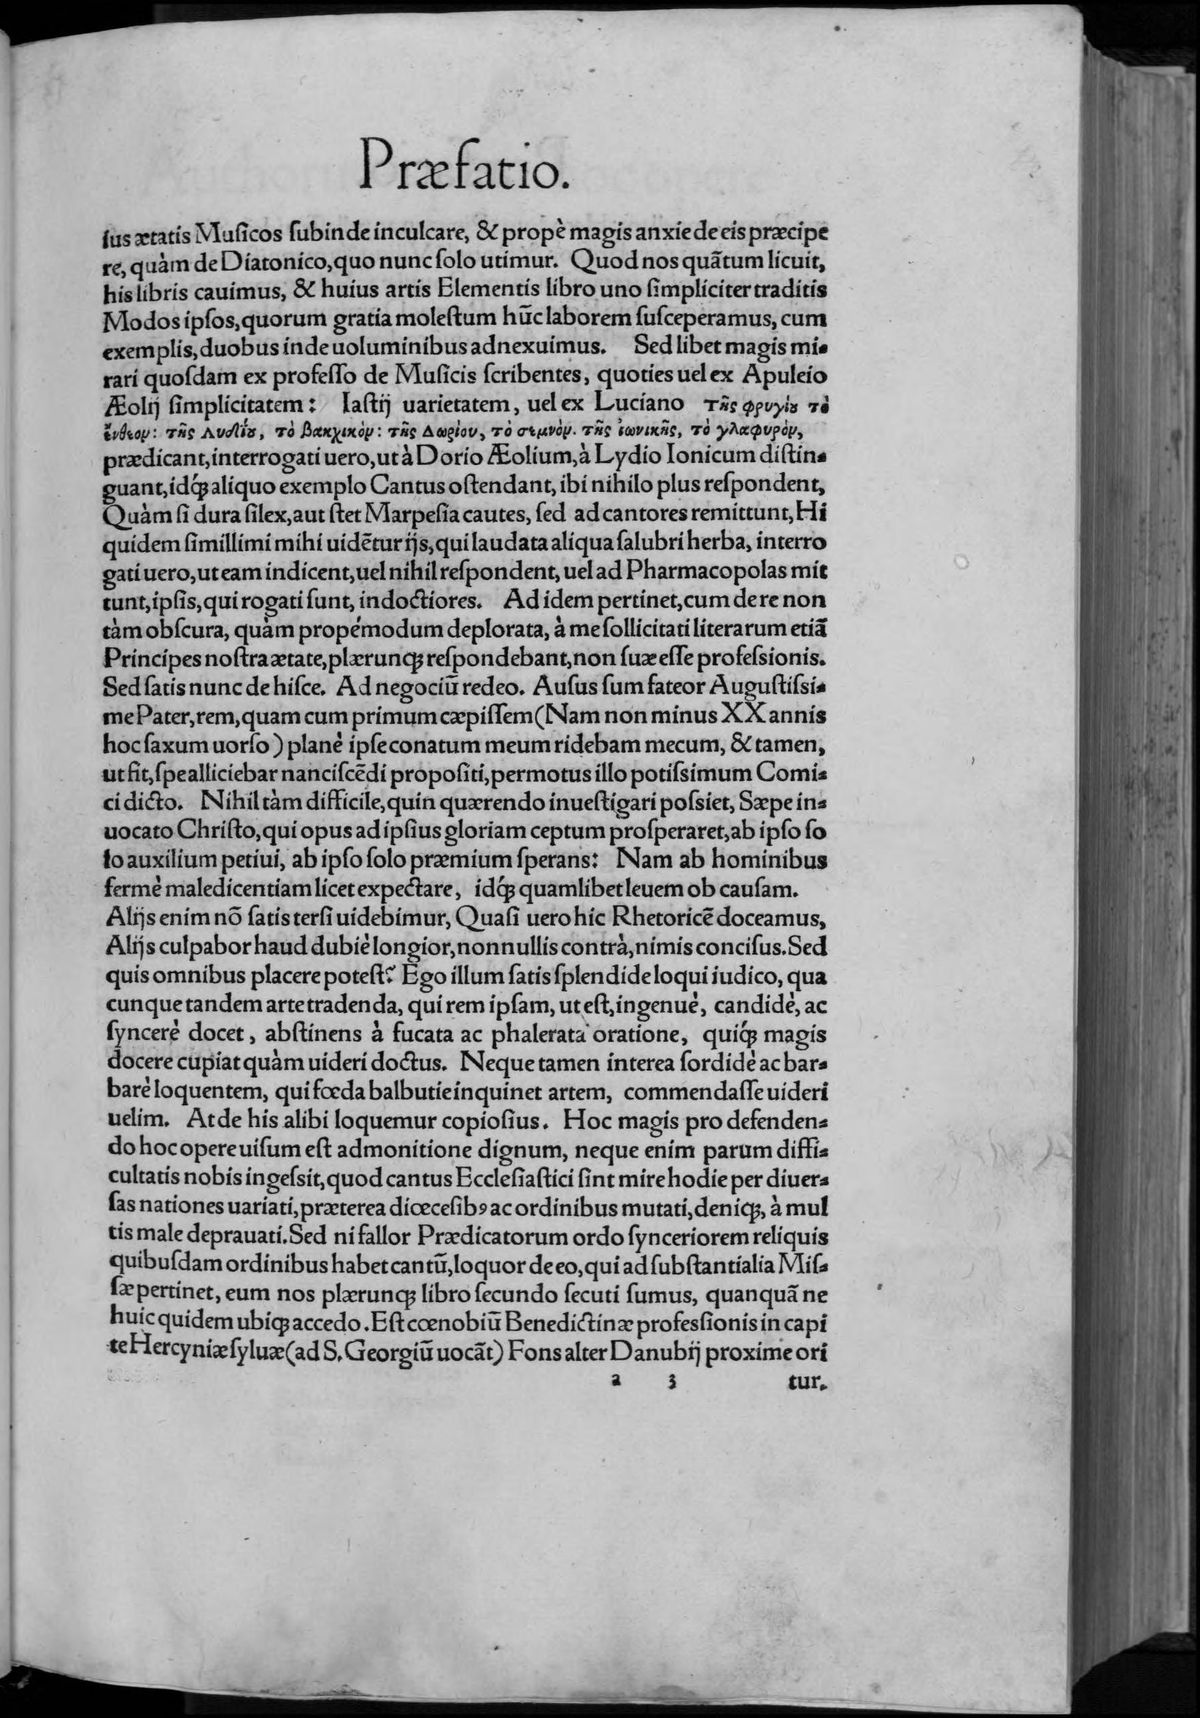 Præfatio.
ſus ætatis Muſicos ſubinde inculcare, & propè magis anxie de eis præcipe
re, quàm de Diatonico, quo nunc ſolo utimur. Quod nos quãtum licuit,
his libris cauimus, & huius artis Elementis libro uno ſimpliciter traditis
Modos ipſos, quorum gratia moleſtum hũc laborem ſuſceperamus, cum
exemplis, duobus inde uoluminibus adnexuimus. Sed libet magis mi-
rari quoſdam ex profeſſo de Muſicis ſcribentes, quoties uel ex Apuleio
Æolij ſimplicitatem: Iaſtij uarietatem, uel ex Luciano τῆς φρυγίȣ τὸ
ἔνθεομ: τῆς Λυδίȣ, τὸ βακχικὸμ: τῆς Δωρίου, τὸ σεμνὸμ. τῆς ἰωνικῆς, τὸ γλαφυρὸμ,
prædicant, interrogati uero, ut à Dorio Æolium, à Lydio Ionicum diſtin-
guant, idq́ꝫ aliquo exemplo Cantus oſtendant, ibi nihilo plus reſpondent,
Quàm ſi dura ſilex, aut ſtet Marpeſia cautes, ſed ad cantores remittunt, Hi
quidem ſimillimi mihi uidẽtur ijs, qui laudata aliqua ſalubri herba, interro
gati uero, ut eam indicent, uel nihil reſpondent, uel ad Pharmacopolas mit
tunt, ipſis, qui rogati ſunt, indoctiores. Ad idem pertinet, cum de re non
tàm obſcura, quàm propémodum deplorata, à me ſollicitati literarum etiã
Principes noſtra ætate, plærunqꝫ reſpondebant, non ſuæ eſſe profeſsionis.
Sed ſatis nunc de hiſce. Ad negociũ redeo. Auſus ſum fateor Auguſtiſsi-
me Pater, rem, quam cum primum cæpiſſem (Nam non minus XX annis
hoc ſaxum uorſo) planè ipſe conatum meum ridebam mecum, & tamen,
ut fit, ſpe alliciebar nanciſcẽdi propoſiti, permotus illo potiſsimum Comi-
ci dicto. Nihil tàm difficile, quin quærendo inueſtigari poſsiet, Sæpe in-
uocato Chriſto, qui opus ad ipſius gloriam ceptum proſperaret, ab ipſo ſo
lo auxilium petiui, ab ipſo ſolo præmium ſperans: Nam ab hominibus
fermè maledicentiam licet expectare, idq́ꝫ quamlibet leuem ob cauſam.
Alijs enim nõ ſatis terſi uidebimur, Quaſi uero hic Rhetoricẽ doceamus,
Alijs culpabor haud dubiè longior, nonnullis contrà, nimis conciſus. Sed
quis omnibus placere poteſt? Ego illum ſatis ſplendide loqui iudico, qua
cunque tandem arte tradenda, qui rem ipſam, ut eſt, ingenuè, candidè, ac
ſyncerè docet, abſtinens à fucata ac phalerata oratione, quiq́ꝫ magis
docere cupiat quàm uideri doctus. Neque tamen interea ſordidè ac bar-
barè loquentem, qui fœda balbutie inquinet artem, commendaſſe uideri
uelim. At de his alibi loquemur copioſius. Hoc magis pro defenden-
do hoc opere uiſum eſt admonitione dignum, neque enim parum diffi-
cultatis nobis ingeſsit, quod cantus Eccleſiaſtici ſint mire hodie per diuer-
ſas nationes uariati, præterea diœceſibꝰ ac ordinibus mutati, deniqꝫ, à mul
tis male deprauati. Sed ni fallor Prædicatorum ordo ſynceriorem reliquis
quibuſdam ordinibus habet cantũ, loquor de eo, qui ad ſubſtantialia Miſ-
ſæ pertinet, eum nos plærunqꝫ libro ſecundo ſecuti ſumus, quanquã ne
huic quidem ubiqꝫ accedo. Eſt cœnobiũ Benedictinæ profeſsionis in capi
te Hercyniæ ſyluæ (ad S. Georgiũ uocãt) Fons alter Danubij proxime ori
a 3 tur.